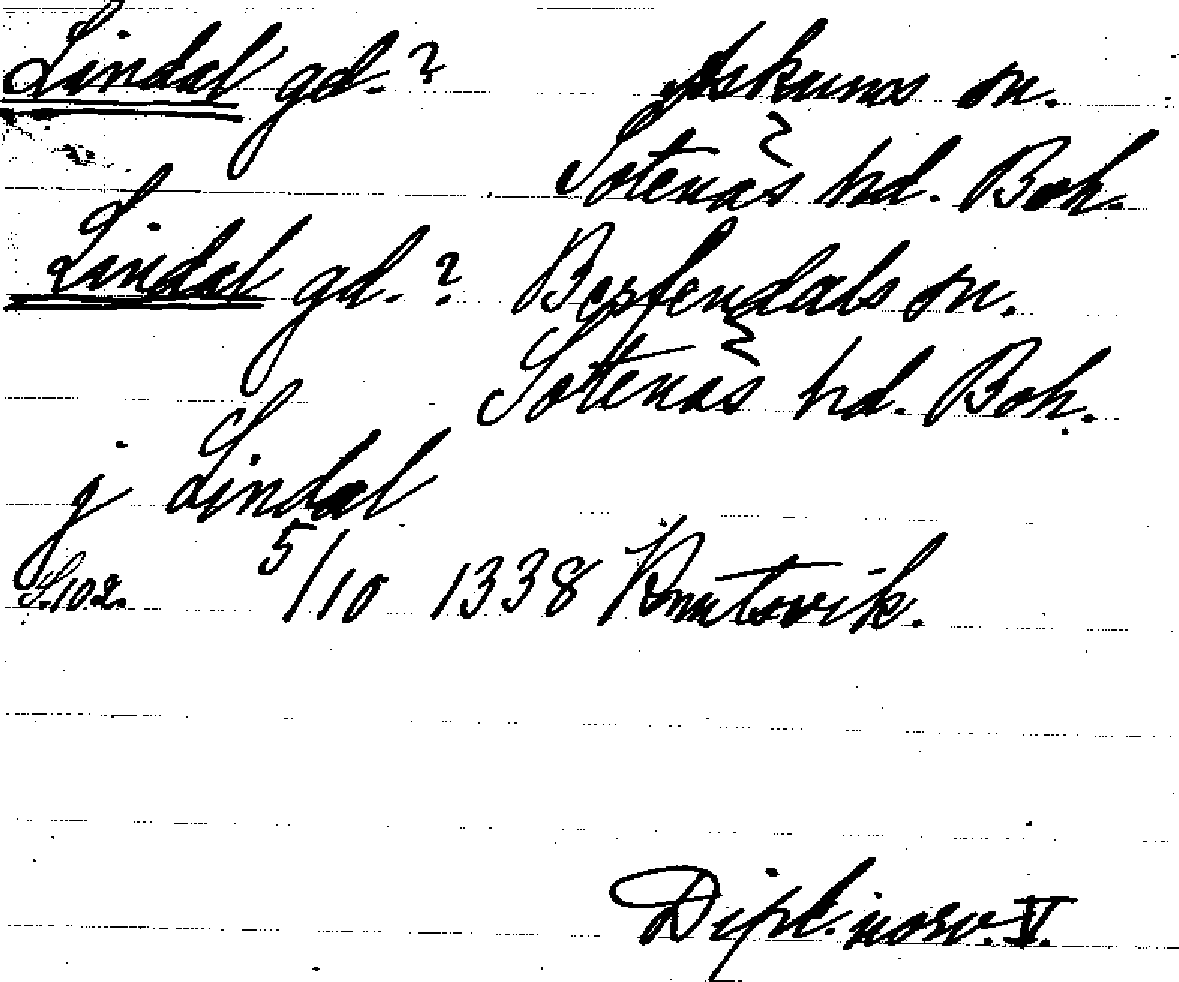 Lindal gd. ? Askums sn.
Sotenäs hd. Boh.
Lindal gd. ? Bärfendals sn.
Sotenäs hd. Boh.
j Lindal
S. 102. 5/10 1338 Knutsvik.
Dipl. norv. V.